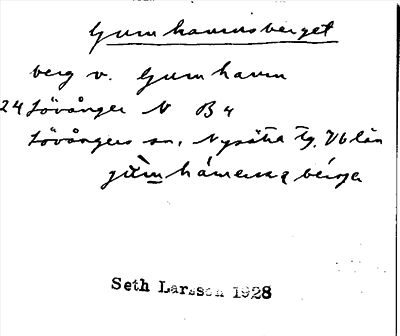 Gumhamnsberget
berg v. Gumhamn
24 Lövånger N B4
Lövångers sn, Nysätra tg, Vb län
Seth Larsson 1928